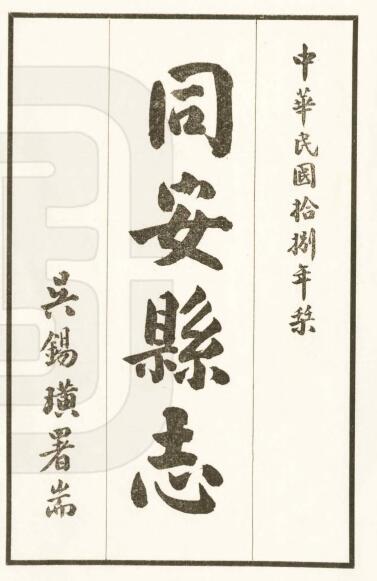 中華民國拾捌年
同安縣志
吳錫璜署耑